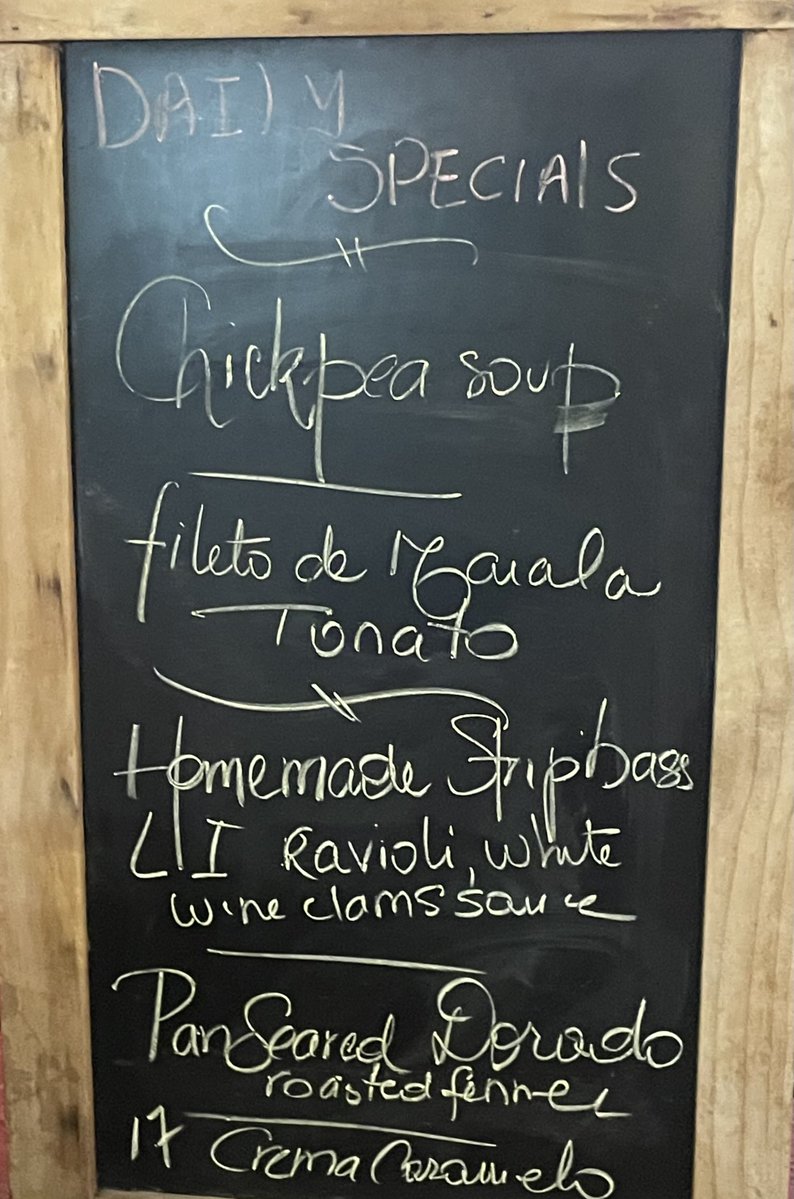 DAILY
SPECIALS
Chickpea soup
fileto de Maiala
Tonato
Homemade Strip bass
LI Ravioli, white
wine clams sauce
Pan Seared Dorado
roasted fennel
17 Crema Caramelo